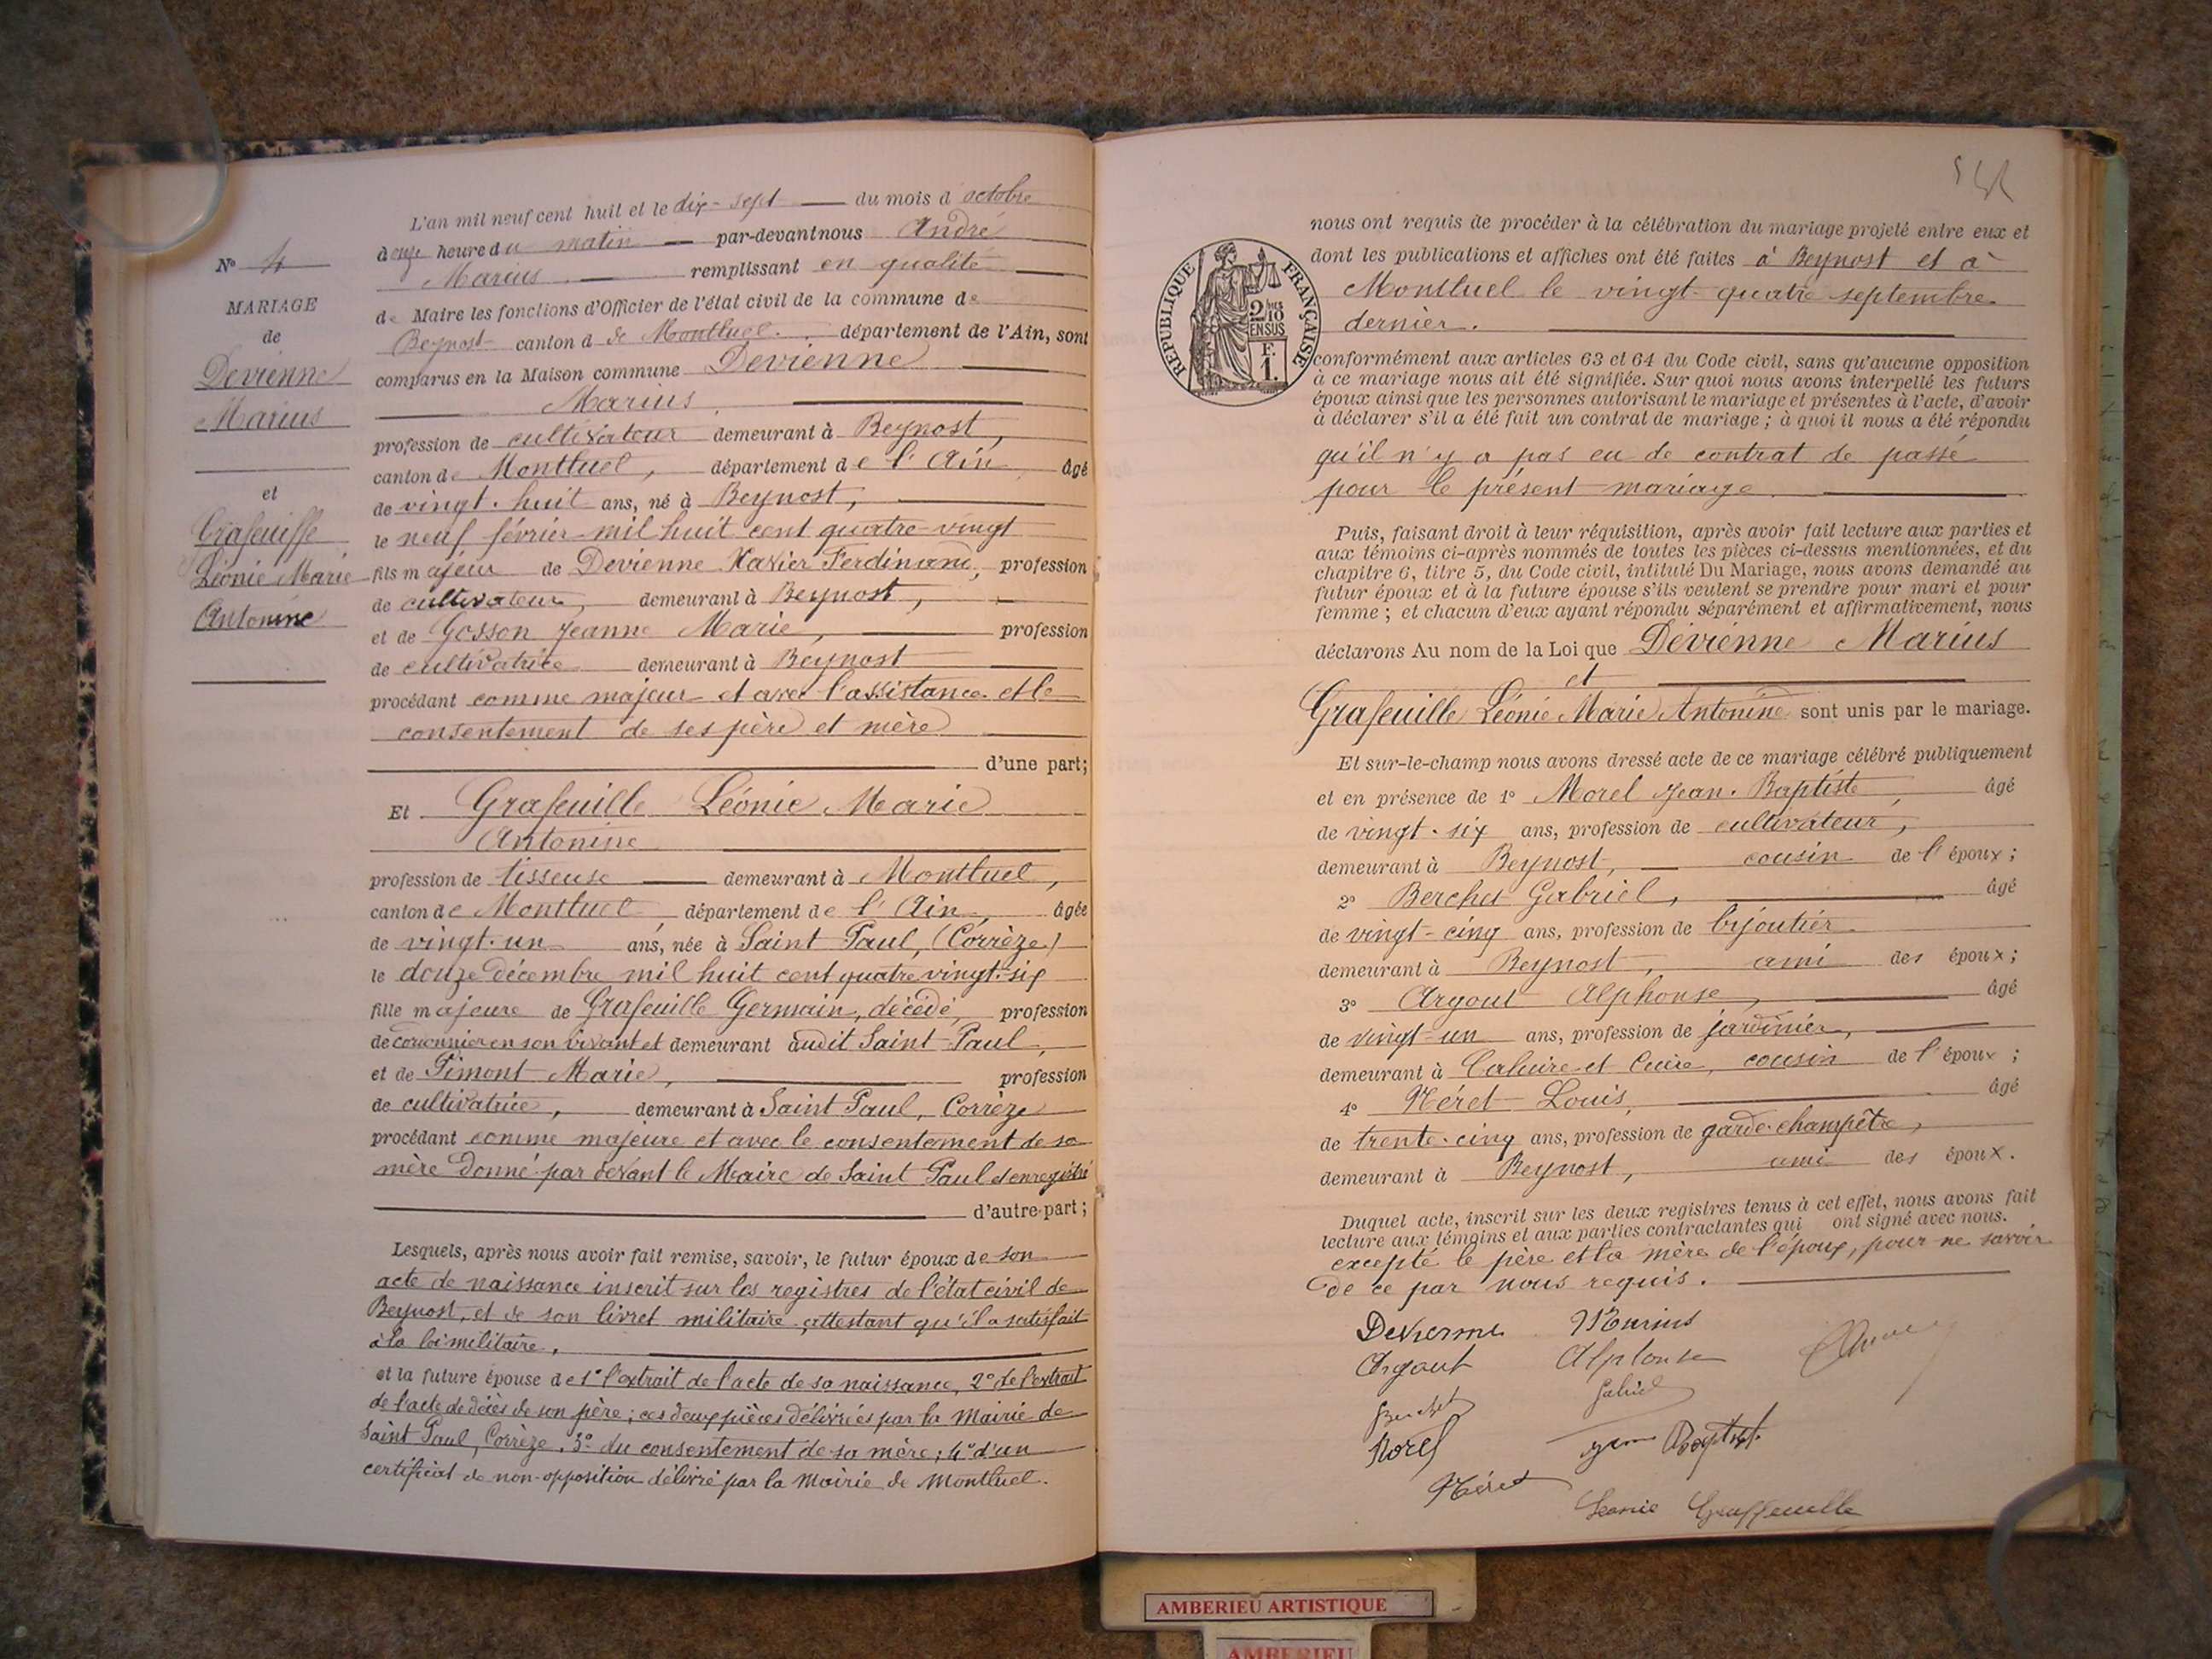 L'an mil neuf cent huit et le dix-sept du mois d octobre
à onze heure du matin par-devant nous André
Marcus remplissant en qualité
de Maire les fonctions d'Officier de l'état civil de la commune de
Beynost canton d de Montluel. département de l'Ain, sont
comparus en la Maison commune Devienne
Marius
profession de cultivateur demeurant à Beynost,
canton de Montluel, département de l'Ain âgé
de vingt-huit ans, né à Beynost,
le neuf février mil huit cent quatre-vingt
fils majeur de Devienne Xavier Ferdinand, profession
de cultivateur, demeurant à Beynost,
et de Gosson Jeanne Marie, profession
de cultivatrice demeurant à Beynost
procédant comme majeur et avec l'assistance et le
consentement de ses père et mère
d'une part;
Et Grafeuille Léonie Marie
Antonine
profession de tisseuse demeurant à Montluel,
canton de Montluel département de l'Ain, âgée
de vingt-un ans, née à Saint Paul, (Corrèze)
le douze décembre mil huit cent quatre vingt-six
fille majeure de Grafeuille Germain, décédé, profession
de cordonnier en son vivant et demeurant audit Saint-Paul,
et de Pimont Marie, profession
de cultivatrice, demeurant à Saint Paul, Corrèze
procédant comme majeure et avec le consentement de sa
mère donné par devant le Maire de Saint Paul et enregistré
d'autre part;
Lesquels, après nous avoir fait remise, savoir, le futur époux de son
acte de naissance inscrit sur les registres de l'état civil de
Beynost, et de son livret militaire attestant qu'il a satisfait
à la loi militaire,
et la future épouse de 1° l'extrait de l'acte de sa naissance, 2° de l'extrait
de l'acte de décès de son père; ces deux pièces délivrées par la Mairie de
Saint Paul, Corrèze, 3° du consentement de sa mère; 4° d'un
certificat de non-opposition délivré par la Mairie de Montluel.
N° 4
MARIAGE
de
Devienne
Marius
et
Grafeuille
Léonie Marie
Antonine
nous ont requis de procéder à la célébration du mariage projeté entre eux et
dont les publications et affiches ont été faites à Beynost et à
Montluel le vingt-quatre septembre
dernier.
REPUBLIQUE FRANÇAISE
2/10
EN SUS
F.
1.
conformément aux articles 63 et 64 du Code civil, sans qu'aucune opposition
à ce mariage nous ait été signifiée. Sur quoi nous avons interpellé les futurs
époux ainsi que les personnes autorisant le mariage et présentes à l'acte, d'avoir
à déclarer s'il a été fait un contrat de mariage; à quoi il nous a été répondu
qu'il n'y a pas eu de contrat de passé
pour le présent mariage.
Puis, faisant droit à leur réquisition, après avoir fait lecture aux parties et
aux témoins ci-après nommés de toutes les pièces ci-dessus mentionnées, et du
chapitre 6, titre 5, du Code civil, intitulé Du Mariage, nous avons demandé au
futur époux et à la future épouse s'ils veulent se prendre pour mari et pour
femme; et chacun d'eux ayant répondu séparément et affirmativement, nous
déclarons Au nom de la Loi que Devienne Marius
et
Grafeuille Léonie Marie Antonine sont unis par le mariage.
Et sur-le-champ nous avons dressé acte de ce mariage célébré publiquement
et en présence de 1° Morel Jean-Baptiste, âgé
de vingt-six ans, profession de cultivateur,
demeurant à Beynost, cousin de l'époux;
2° Berchet Gabriel, âgé
de vingt-cinq ans, profession de bijoutier
demeurant à Beynost, ami des époux;
3° Argout Alphonse, âgé
de vingt-un ans, profession de jardinier,
demeurant à Caluire et Cuire, cousin de l'époux;
4° Néret Louis, âgé
de trente-cinq ans, profession de garde-champêtre,
demeurant à Beynost, ami des époux.
Duquel acte, inscrit sur les deux registres tenus à cet effet, nous avons fait
lecture aux témoins et aux parties contractantes qui ont signé avec nous.
excepté le père et la mère de l'époux, pour ne savoir
de ce par nous requis.
Devienne Marius
Argout Alphonse
Berchet Gabriel
Morel Jean Baptiste
Néret
Léonie Graffeuille
AMBERIEU ARTISTIQUE
AMBERIEU